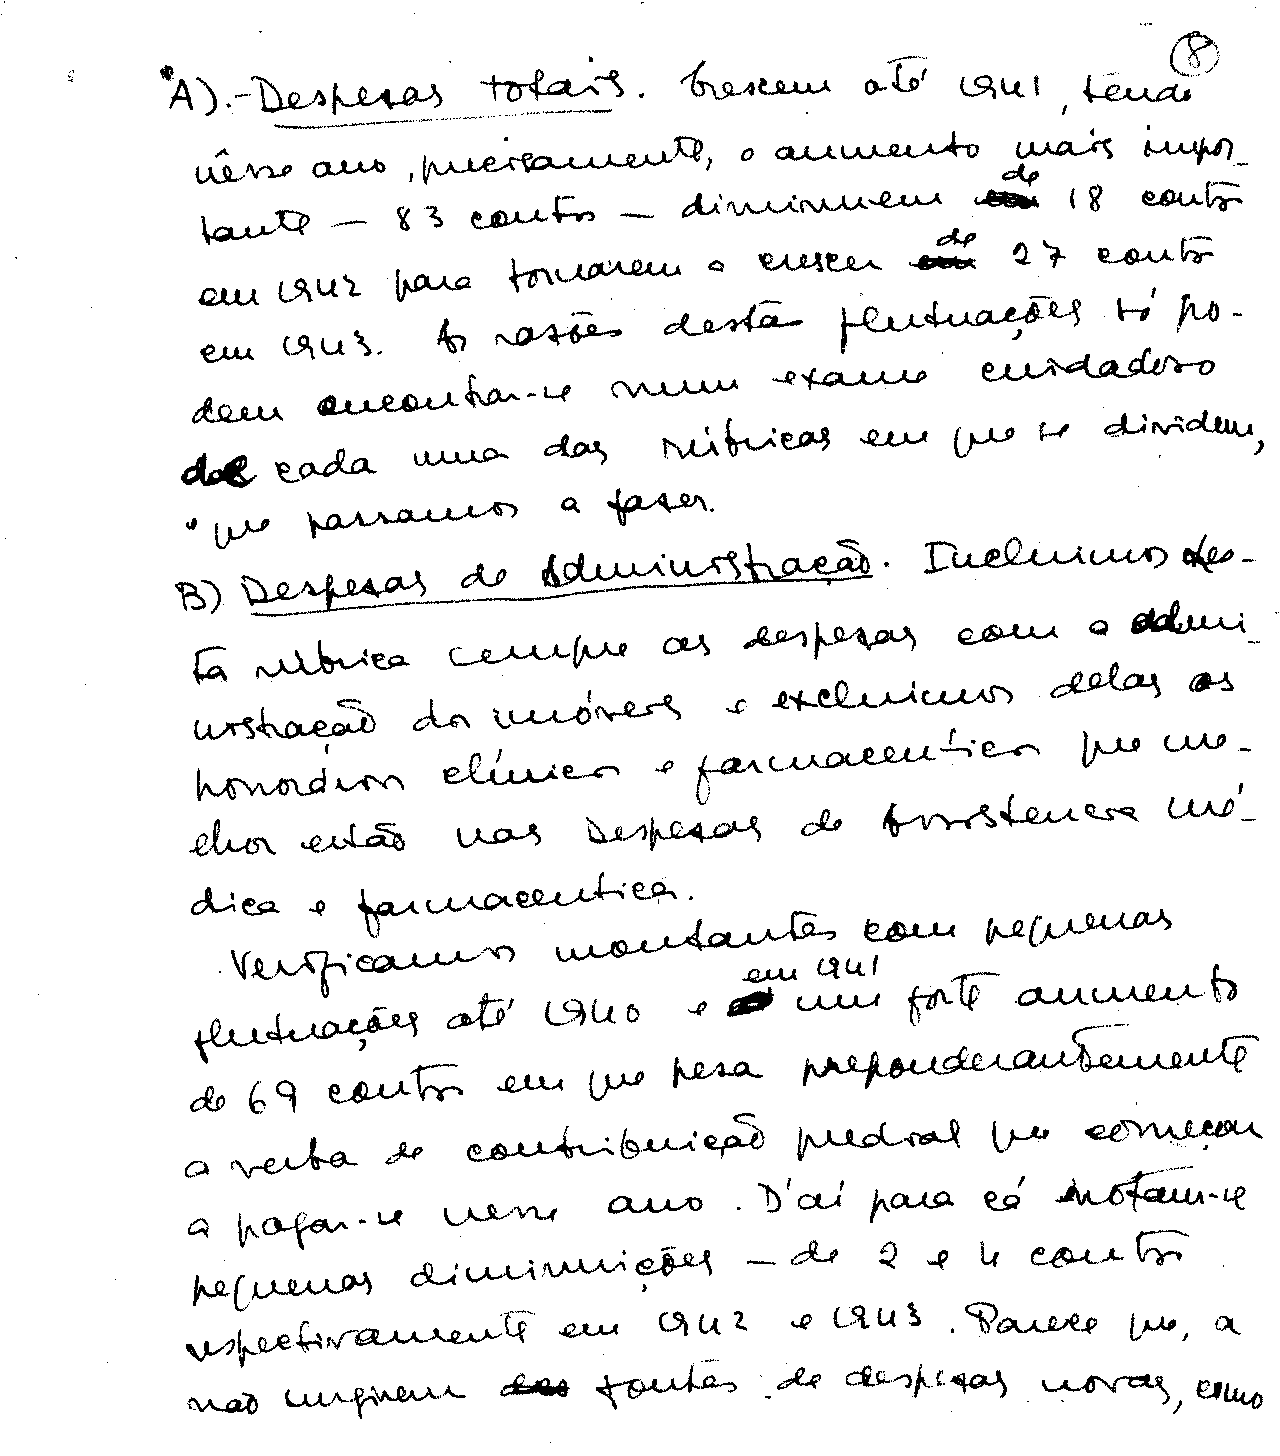 8
A).- Despesas totais. Crescem até 1941, tendo
nêsse ano, precisamente, o aumento mais impor-
tante - 83 contos - diminuem de 18 contos
em 1942 para tornarem a crescer de 27 contos
em 1943. As rasões destas flutuações só po-
dem encontrar-se num exame cuidadoso
de cada uma das rúbricas em que se dividem,
o que passamos a faser.
B) Despesas de Administração. Incluimos des-
ta rúbrica sempre as despesas com a admi-
nistração dos imóveis e excluimos delas os
honorários clínicos e farmaceuticos que me-
lhor estão nas Despesas de Assistencia mé-
dica e farmaceutica.
Verificamos montantes com pequenas
flutuações até 1940 e em 1941 um forte aumento
de 69 contos em que pesa preponderantemente
a verba de contribuição predial que começou
a pagar-se nesse ano. D'aí para cá notam-se
pequenas diminuições - de 2 e 4 contos
respectivamente em 1942 e 1943. Parece que, a
não surgirem fontes de despesas novas, como